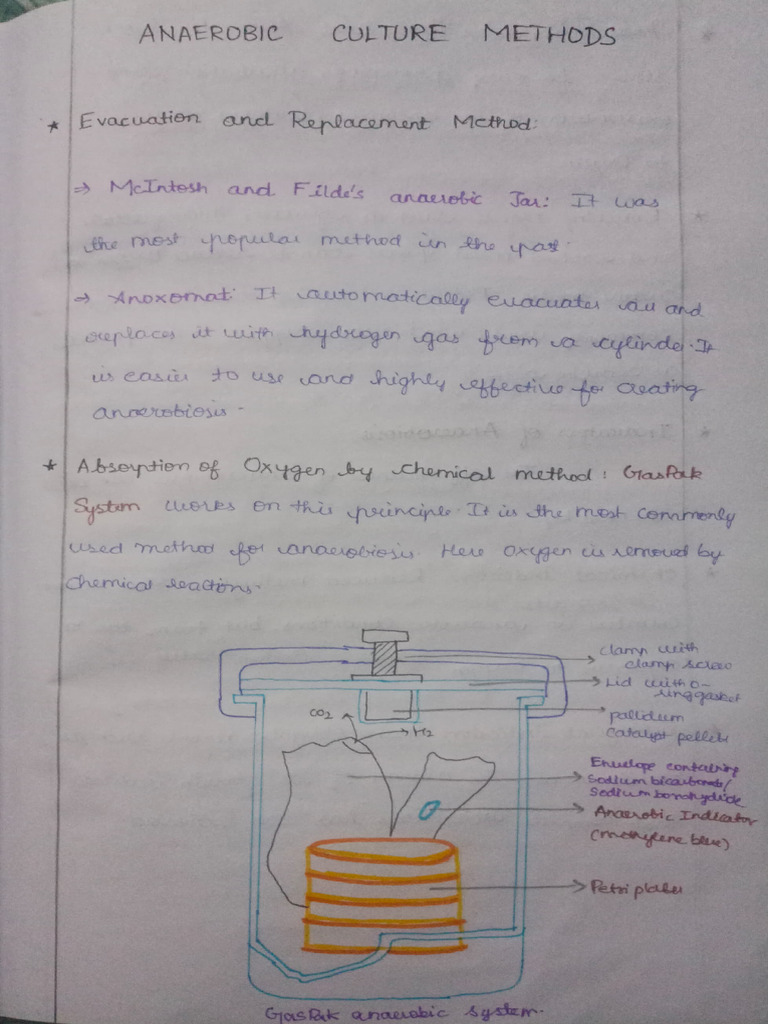 ANAEROBIC CULTURE METHODS
* Evacuation and Replacement Method:
⇒ McIntosh and Filde's anaerobic Jar: It was
the most popular method in the past.
⇒ Anoxomat: It automatically evacuates air and
replaces it with hydrogen gas from a cylinder. It
is easier to use and highly effective for creating
anaerobiosis.
* Absorption of Oxygen by chemical method: GasPak
System works on this principle. It is the most commonly
used method for anaerobiosis. Here oxygen is removed by
chemical reactions.
clamp with
clamp screw
Lid with O-
ring gasket
CO2
H2
palladium
catalyst pellets
Envelope containing
sodium bicarbonate/
sodium borohydride
Anaerobic Indicator
(methylene blue)
Petri plates
GasPak anaerobic system.